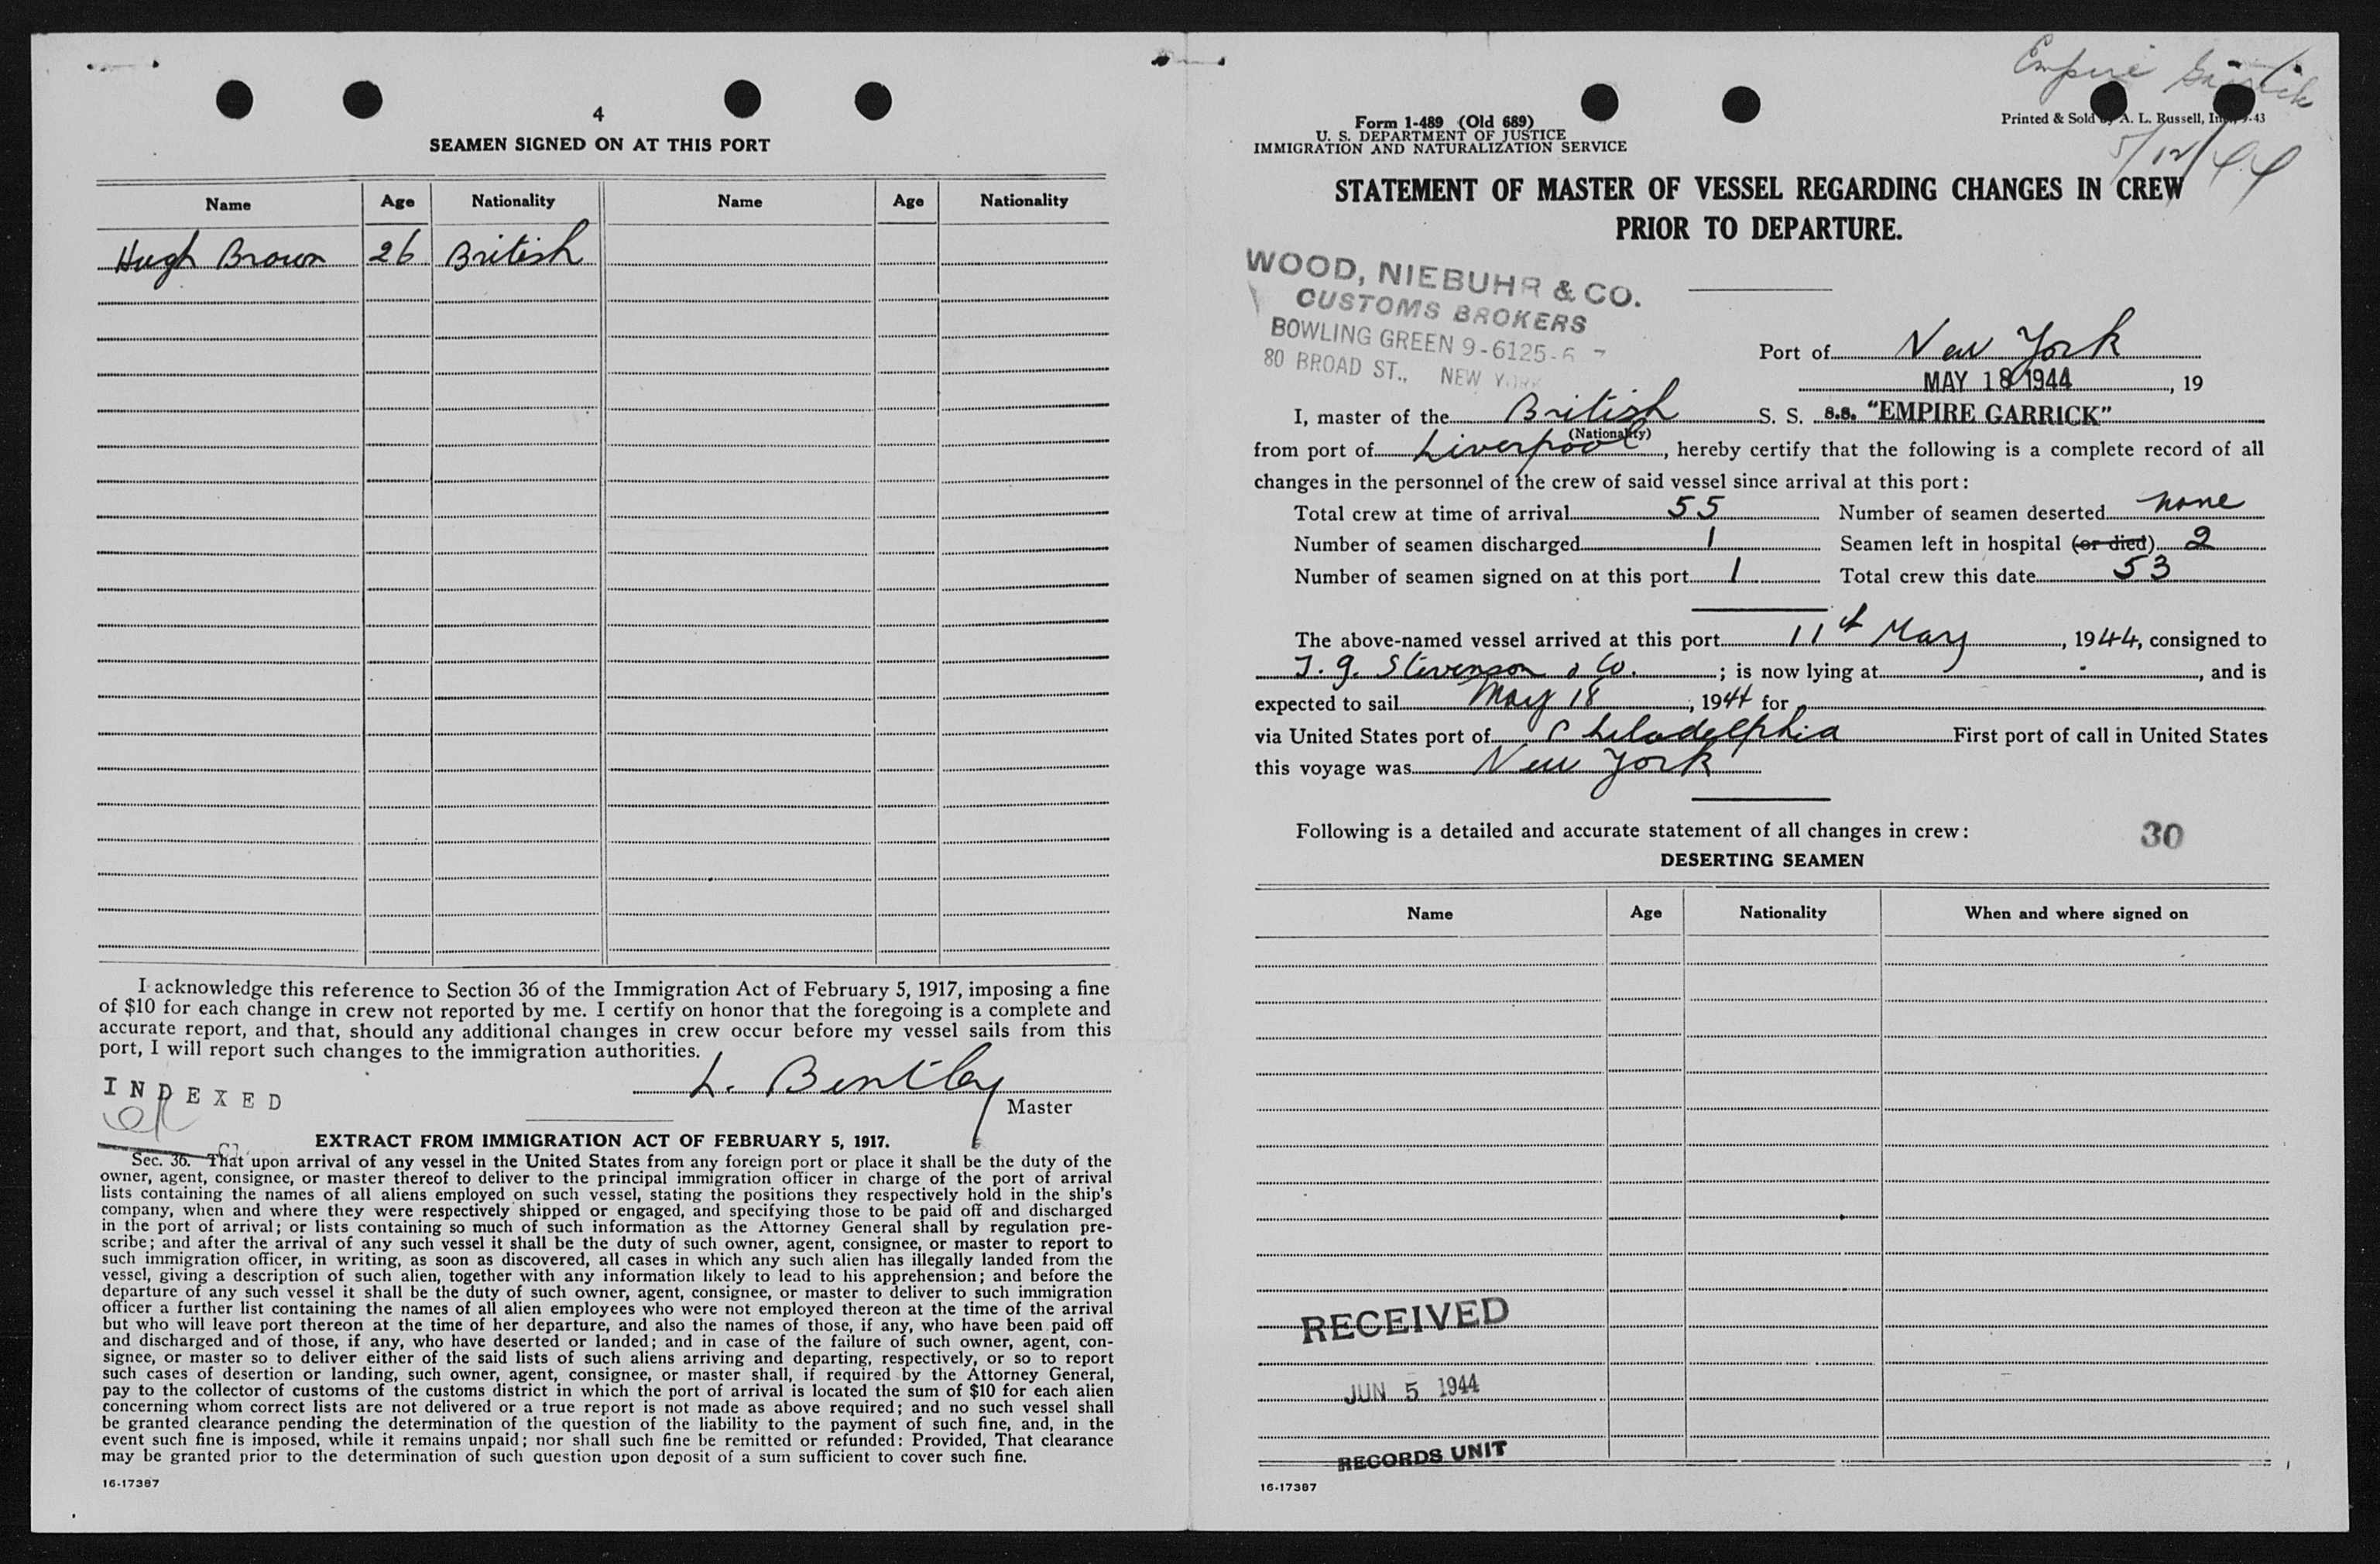 4
SEAMEN SIGNED ON AT THIS PORT
Name Age Nationality Name Age Nationality
Hugh Brown 26 British
I acknowledge this reference to Section 36 of the Immigration Act of February 5, 1917, imposing a fine
of $10 for each change in crew not reported by me. I certify on honor that the foregoing is a complete and
accurate report, and that, should any additional changes in crew occur before my vessel sails from this
port, I will report such changes to the immigration authorities.
L. Bentley
Master
INDEXED
EXTRACT FROM IMMIGRATION ACT OF FEBRUARY 5, 1917.
Sec. 36. That upon arrival of any vessel in the United States from any foreign port or place it shall be the duty of the
owner, agent, consignee, or master thereof to deliver to the principal immigration officer in charge of the port of arrival
lists containing the names of all aliens employed on such vessel, stating the positions they respectively hold in the ship's
company, when and where they were respectively shipped or engaged, and specifying those to be paid off and discharged
in the port of arrival; or lists containing so much of such information as the Attorney General shall by regulation pre-
scribe; and after the arrival of any such vessel it shall be the duty of such owner, agent, consignee, or master to report to
such immigration officer, in writing, as soon as discovered, all cases in which any such alien has illegally landed from the
vessel, giving a description of such alien, together with any information likely to lead to his apprehension; and before the
departure of any such vessel it shall be the duty of such owner, agent, consignee, or master to deliver to such immigration
officer a further list containing the names of all alien employees who were not employed thereon at the time of the arrival
but who will leave port thereon at the time of her departure, and also the names of those, if any, who have been paid off
and discharged and of those, if any, who have deserted or landed; and in case of the failure of such owner, agent, con-
signee, or master so to deliver either of the said lists of such aliens arriving and departing, respectively, or so to report
such cases of desertion or landing, such owner, agent, consignee, or master shall, if required by the Attorney General,
pay to the collector of customs of the customs district in which the port of arrival is located the sum of $10 for each alien
concerning whom correct lists are not delivered or a true report is not made as above required; and no such vessel shall
be granted clearance pending the determination of the question of the liability to the payment of such fine, and, in the
event such fine is imposed, while it remains unpaid; nor shall such fine be remitted or refunded: Provided, That clearance
may be granted prior to the determination of such question upon deposit of a sum sufficient to cover such fine.
16-17387
Empire Garrick
Form 1-489 (Old 689)
U. S. DEPARTMENT OF JUSTICE
IMMIGRATION AND NATURALIZATION SERVICE
Printed & Sold by A. L. Russell, Inc. 9-43
5/12/44
STATEMENT OF MASTER OF VESSEL REGARDING CHANGES IN CREW
PRIOR TO DEPARTURE.
WOOD, NIEBUHR & CO.
CUSTOMS BROKERS
BOWLING GREEN 9-6125-6-7
80 BROAD ST., NEW YORK
Port of New York
MAY 18 1944, 19
I, master of the British S. S. s.s. "EMPIRE GARRICK"
(Nationality)
from port of Liverpool, hereby certify that the following is a complete record of all
changes in the personnel of the crew of said vessel since arrival at this port:
Total crew at time of arrival 55 Number of seamen deserted none
Number of seamen discharged 1 Seamen left in hospital (or died) 2
Number of seamen signed on at this port 1 Total crew this date 53
The above-named vessel arrived at this port 11th May, 1944, consigned to
T. J. Stevenson & Co.; is now lying at , and is
expected to sail May 18, 1944 for
via United States port of Philadelphia First port of call in United States
this voyage was New York
Following is a detailed and accurate statement of all changes in crew:
30
DESERTING SEAMEN
Name Age Nationality When and where signed on
RECEIVED
JUN 5 1944
RECORDS UNIT
16-17387